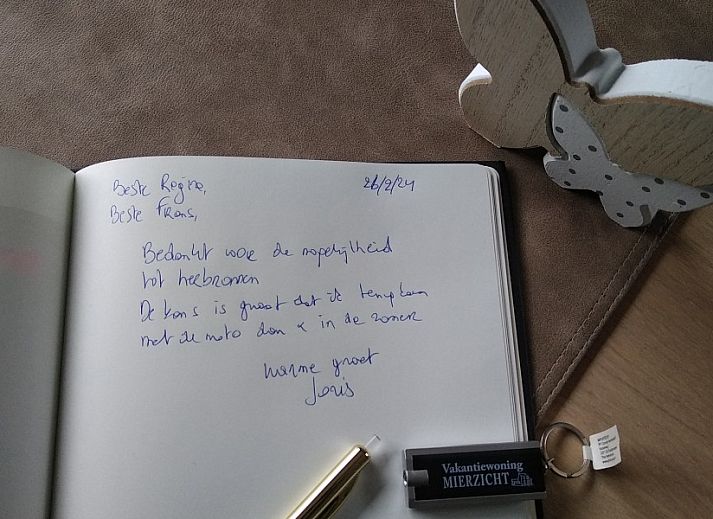 Beste Regine,
26/2/24
Beste Frans,
Bedankt voor de mogelijkheid
tot herbronnen
De kans is groot dat ik terug kom
met de moto dan in de zomer
warme groet
Joris
Vakantiewoning
MIERZICHT